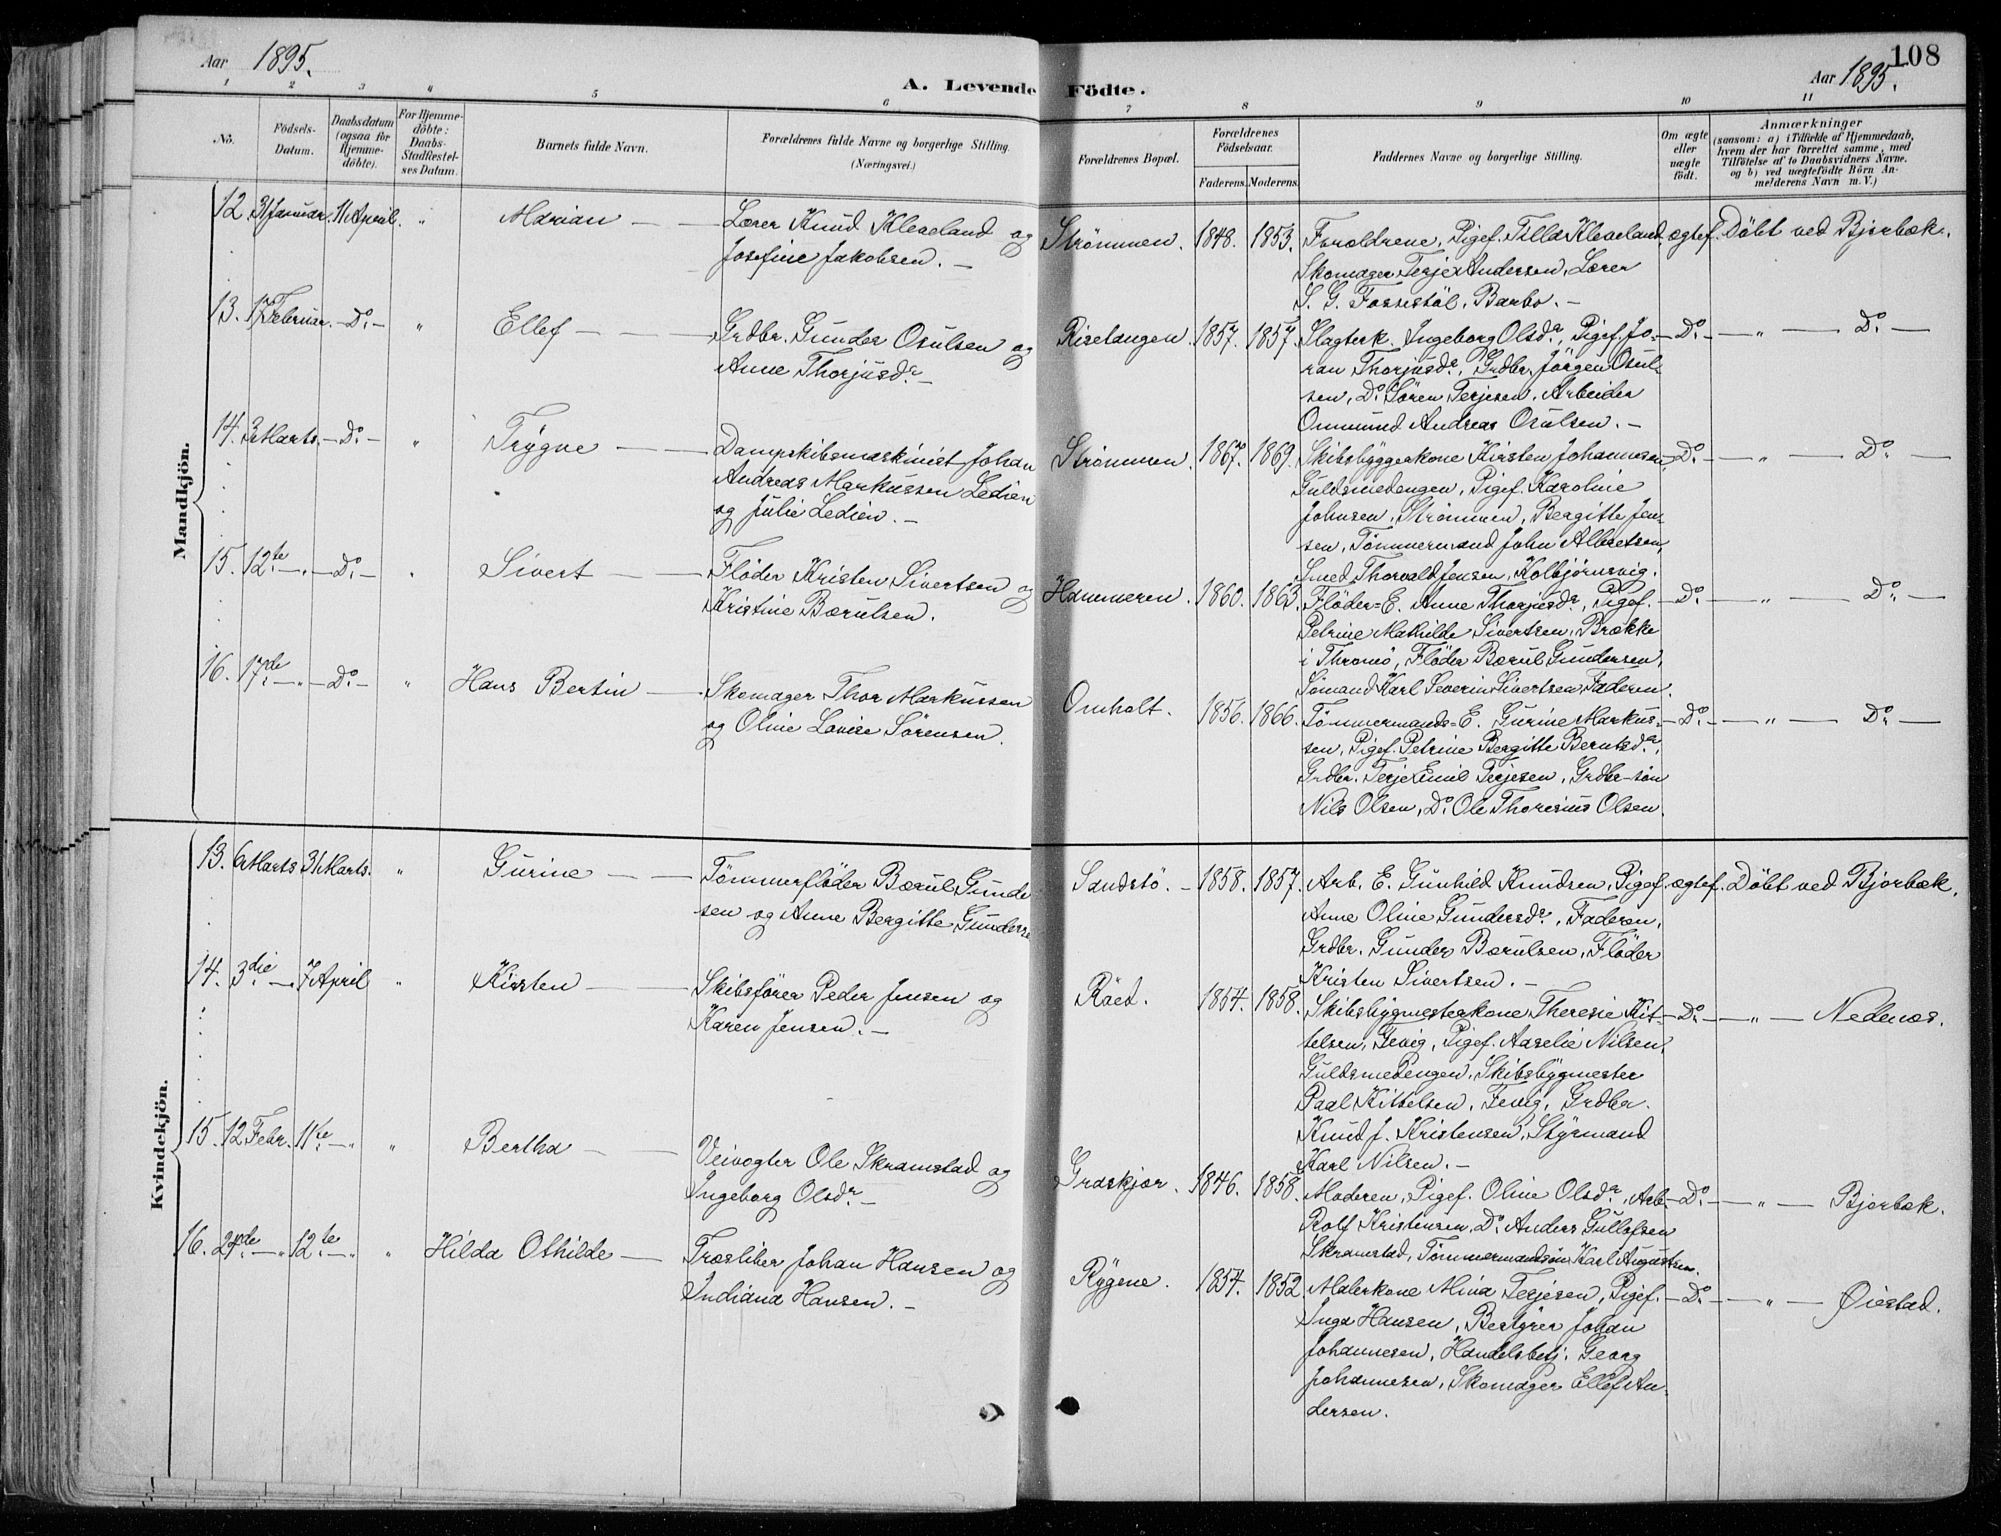 108
Aar 1895.
A. Levende Födte.
Aar 1895.
1 2 3 4 5 6 7 8 9 10 11
No.
Födsels-Datum.
Daabsdatum (ogsaa for Hjemme-döbte).
For Hjemme-döbte: Daabs-Stadfæstel-ses Datum.
Barnets fulde Navn.
Forældrenes fulde Navne og borgerlige Stilling.
(Næringsvei.)
Forældrenes Bopæl.
Forældrenes Födselsaar.
Faderens. Moderens.
Faddernes Navne og borgerlige Stilling.
Om ægte eller uægte födt.
Anmærkninger
(saasom: a) i Tilfælde af Hjemmedaab,
hvem der har forrettet samme, med
Tilföielse af to Daabsvidners Navne.
og b) ved uægtefödte Börn An-
melderens Navn m. V.)
Mandkjön.
12. 31 Januar. 11 April. " Marian —
Lærer Knud Kleveland og
Josefine Jakobsen. —
Strömmen. 1848. 1853.
Forældrene, Pigef. Tilla Kleveland
Skomager Terje Andersen, Lærer
S. G. Fossestöl, Barbo. —
ægtef. Döbt ved Bjorbæk.
13. 17 Februar. — Do. — " Ellef —
Grdbr. Gunder Osulsen og
Anne Thorjusdr. —
Riselangen. 1857. 1857.
Slagterk. Ingeborg Olsdr., Pigef. Jo-
ran Thorjusdr., Grdbr. Jörgen Osul-
sen, Do. Sören Terjesen, Arbeider
Ommund Andreas Osulsen. —
— Do. — " — Do. —
14. 3 Marts. — Do. — " Trygve —
Dampskibsmaskinist Johan
Andreas Markussen Ledien
og Julie Ledien. —
Strømmen. 1867. 1869.
Skibsbyggerkone Kirsten Johannesen,
Guldsmedengen, Pigef. Karoline
Johnsen, Strömmen, Bergitte Jen-
sen, Tömmermand John Albretsen,
Smed Thorvald Jensen, Kolbjörnsvig.
— Do. — " — Do. —
15. 12te — " — Do. — " Sivert —
Flöder Kristen Sivertsen og
Kristine Bærulsen.
Hammeren. 1860. 1863.
Flöder-E. Anne Thorjusdr., Pigef.
Petrine Mathilde Sivertsen, Brække
i Thromö, Flöder Bærul Gundersen,
Sömand Karl Severin Sivertsen, Faderen.
— Do. — " — Do. —
16. 17de — " — Do. — " Hans Bertin —
Skomager Thor Markussen
og Oline Lovise Sörensen.
Omholt. 1856. 1866.
Tömmermands-E. Gurine Markus-
sen, Pigef. Petrine Bergitte Berntsdr.,
Grdbr. Terje Emil Terjesen, Grdbr-sön
Nils Olsen, Do. Ole Thoresius Olsen.
— Do. — " — Do. —
Kvindekjön.
13. 6 Marts 31 Marts. " Gurine —
Tömmerflöder Bærul Gunder
sen og Anne Bergitte Gunderse
Sandstö. — 1858. 1857.
Arb. E. Gunhild Knudsen, Pigef.
Anne Oline Gundersdr., Faderen,
Grdbr. Gunder Bærulsen, Flöder
Kristen Sivertsen. —
ægtef. Döbt ved Bjorbæk.
14. 3die — 7 April " Kirsten —
Skibsförer Peder Jensen og
Karen Jensen. —
Röed. 1854. 1858.
Skibsbygmesterkone Theresie Kit-
telsen, Fevig, Pigef. Aaselie Nilsen,
Guldsmedengen, Skibsbygmester
Paal Kittelsen, Fevig, Grdbr.
Knud J. Kristensen, Styrmand
Karl Nilsen. —
— Do. — " — Nedenæs.
15. 12 Febr. 11te — " " Bertha —
Veivogter Ole Skramstad og
Ingeborg Olsdr. —
Graskjær. 1846. 1858.
Moderen, Pigef. Oline Olsdr., Arb.
Rolf Kristensen, Do. Anders Gullofsen
Skramstad, Tömmermandsön Karl Augustsen.
— Do. — " — Bjorbæk.
16. 27de — " 12te — " " Hilda Othilde —
Træsliber Johan Hansen og
Indiana Hansen. —
Rygene. 1854. 1852.
Malerkone Mina Terjesen, Pigef.
Inga Hansen, Bestyrer Johan
Johannesen, Handelsbetj. Georg
Johannesen, Skomager Ellef An-
dersen.
— Do. — " — Øiestad.